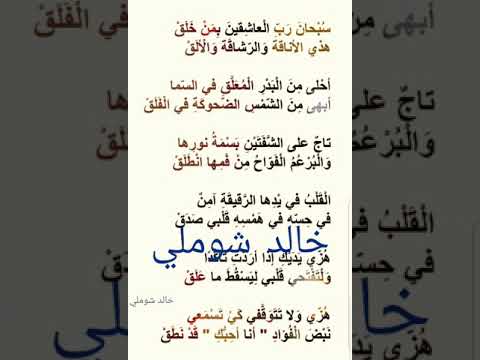 سُبْحانَ رَبّ الْعاشِقينَ بِمَنْ خَلَقْ
هذي الأناقَة وَالرّشاقَة وَالْأَلَقْ
أحْلى مِنَ الْبَدْرِ الْمُعَلَّقِ في السّما
أبهى مِنَ الشَّمْسِ الضّحوكَةِ في الْفَلَقْ
تاجٌ على الشَّفَتَيْنِ بَسْمَةُ نورِها
وَالْبُرْعُمُ الْفَوّاحُ مِنْ فَمِها انْطَلَقْ
الْقَلْبُ في يَدِها الرَّقيقَةِ آمِنٌ
في حِسّه في هَمْسِهِ قَلْبي صَدَقْ
هُزّي يَدَيْكِ إذا أرَدْتِ تَأكّدا
وَلْتَفْتَحي قَلْبي لِيَسْقُطَ ما عَلَقْ
هُزّي وَلا تَتَوَقَّفي كَيْ تَسْمَعي
نَبْضَ الْفُؤادِ " أنا أحِبُّكِ " قَدْ نَطَقْ
خالد شوملي
خالد شوملي